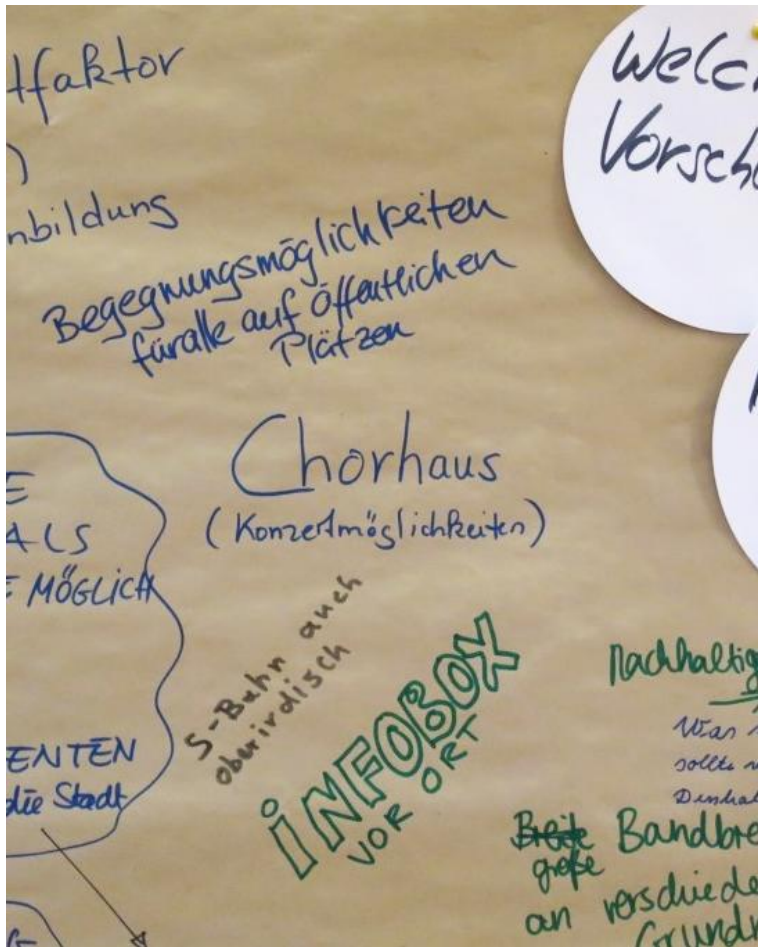 tfaktor
)
nbildung
Welc
Vorsch
Begegnungsmöglichkeiten
für alle auf Öffentlichen
Plätzen
Chorhaus
(Konzertmöglichkeiten)
E
ALS
E MÖGLICH
ENTEN
die Stadt
S-Bahn auch
oberirdisch
iNFOBOX
VOR ORT
Nachhaltig
Was
sollte
Deshal
Breite Bandbre
große
an verschiede
Grundr